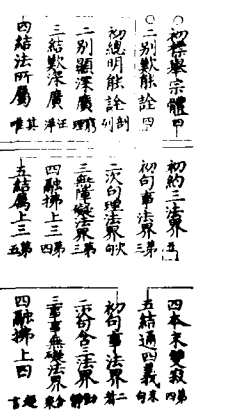 ○初標舉宗體四
○二別歎能詮四
初總明能詮剖列
二別顯深廣窮理
三結歎深廣汪洋
四結法所屬其唯
初約三法界五
初句事法界
二次句理法界次句
三無障礙法界第三
四融拂上三第四
五結屬上三第五
四本末雙寂第四
五結通四義末句
初句事法界
二次句含三法界動靜
三事事無礙法界含衆
四融拂上四超言